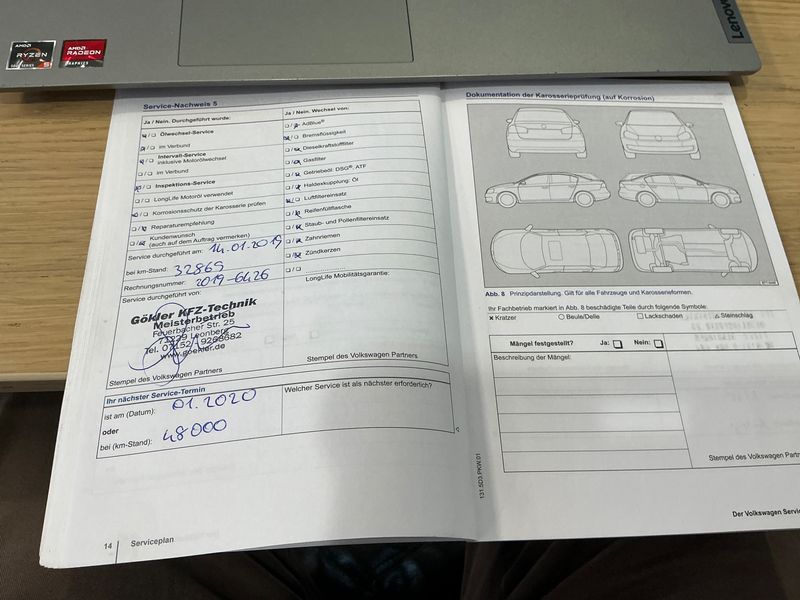 AMD
RYZEN
AMD
RADEON
GRAPHICS
Lenovo
Service-Nachweis 5
Ja / Nein. Durchgeführt wurde:
Ölwechsel-Service
im Verbund
Intervall-Service
inklusive Motorölwechsel
im Verbund
Inspektions-Service
LongLife Motoröl verwendet
Korrosionsschutz der Karosserie prüfen
Reparaturempfehlung
Kundenwunsch
(auch auf dem Auftrag vermerken)
Service durchgeführt am: 14.01.2019
bei km-Stand: 32865
Rechnungsnummer: 2019-6426
Service durchgeführt von:
Gökler KFZ-Technik
Meisterbetrieb
Feuerbacher Str. 25
71229 Leonberg
Tel. 07152
www.goekler.de
Stempel des Volkswagen Partners
Ja / Nein. Wechsel von:
AdBlue®
Bremsflüssigkeit
Dieselkraftstofffilter
Gasfilter
Getriebeöl: DSG®, ATF
Haldexkupplung: Öl
Luftfiltereinsatz
Reifenfüllflasche
Staub- und Pollenfiltereinsatz
Zahnriemen
Zündkerzen
LongLife Mobilitätsgarantie:
Stempel des Volkswagen Partners
Ihr nächster Service-Termin
ist am (Datum): 01.2020
oder
bei (km-Stand): 48000
Welcher Service ist als nächster erforderlich?
14 Serviceplan
Dokumentation der Karosserieprüfung (auf Korrosion)
Abb. 8 Prinzipdarstellung. Gilt für alle Fahrzeuge und Karosserieformen.
Ihr Fachbetrieb markiert in Abb. 8 beschädigte Teile durch folgende Symbole:
× Kratzer ○ Beule/Delle □ Lackschaden △ Steinschlag
Mängel festgestellt? Ja: □ Nein: □
Beschreibung der Mängel:
Stempel des Volkswagen
131.5D3.PKW.01
Der Volkswagen